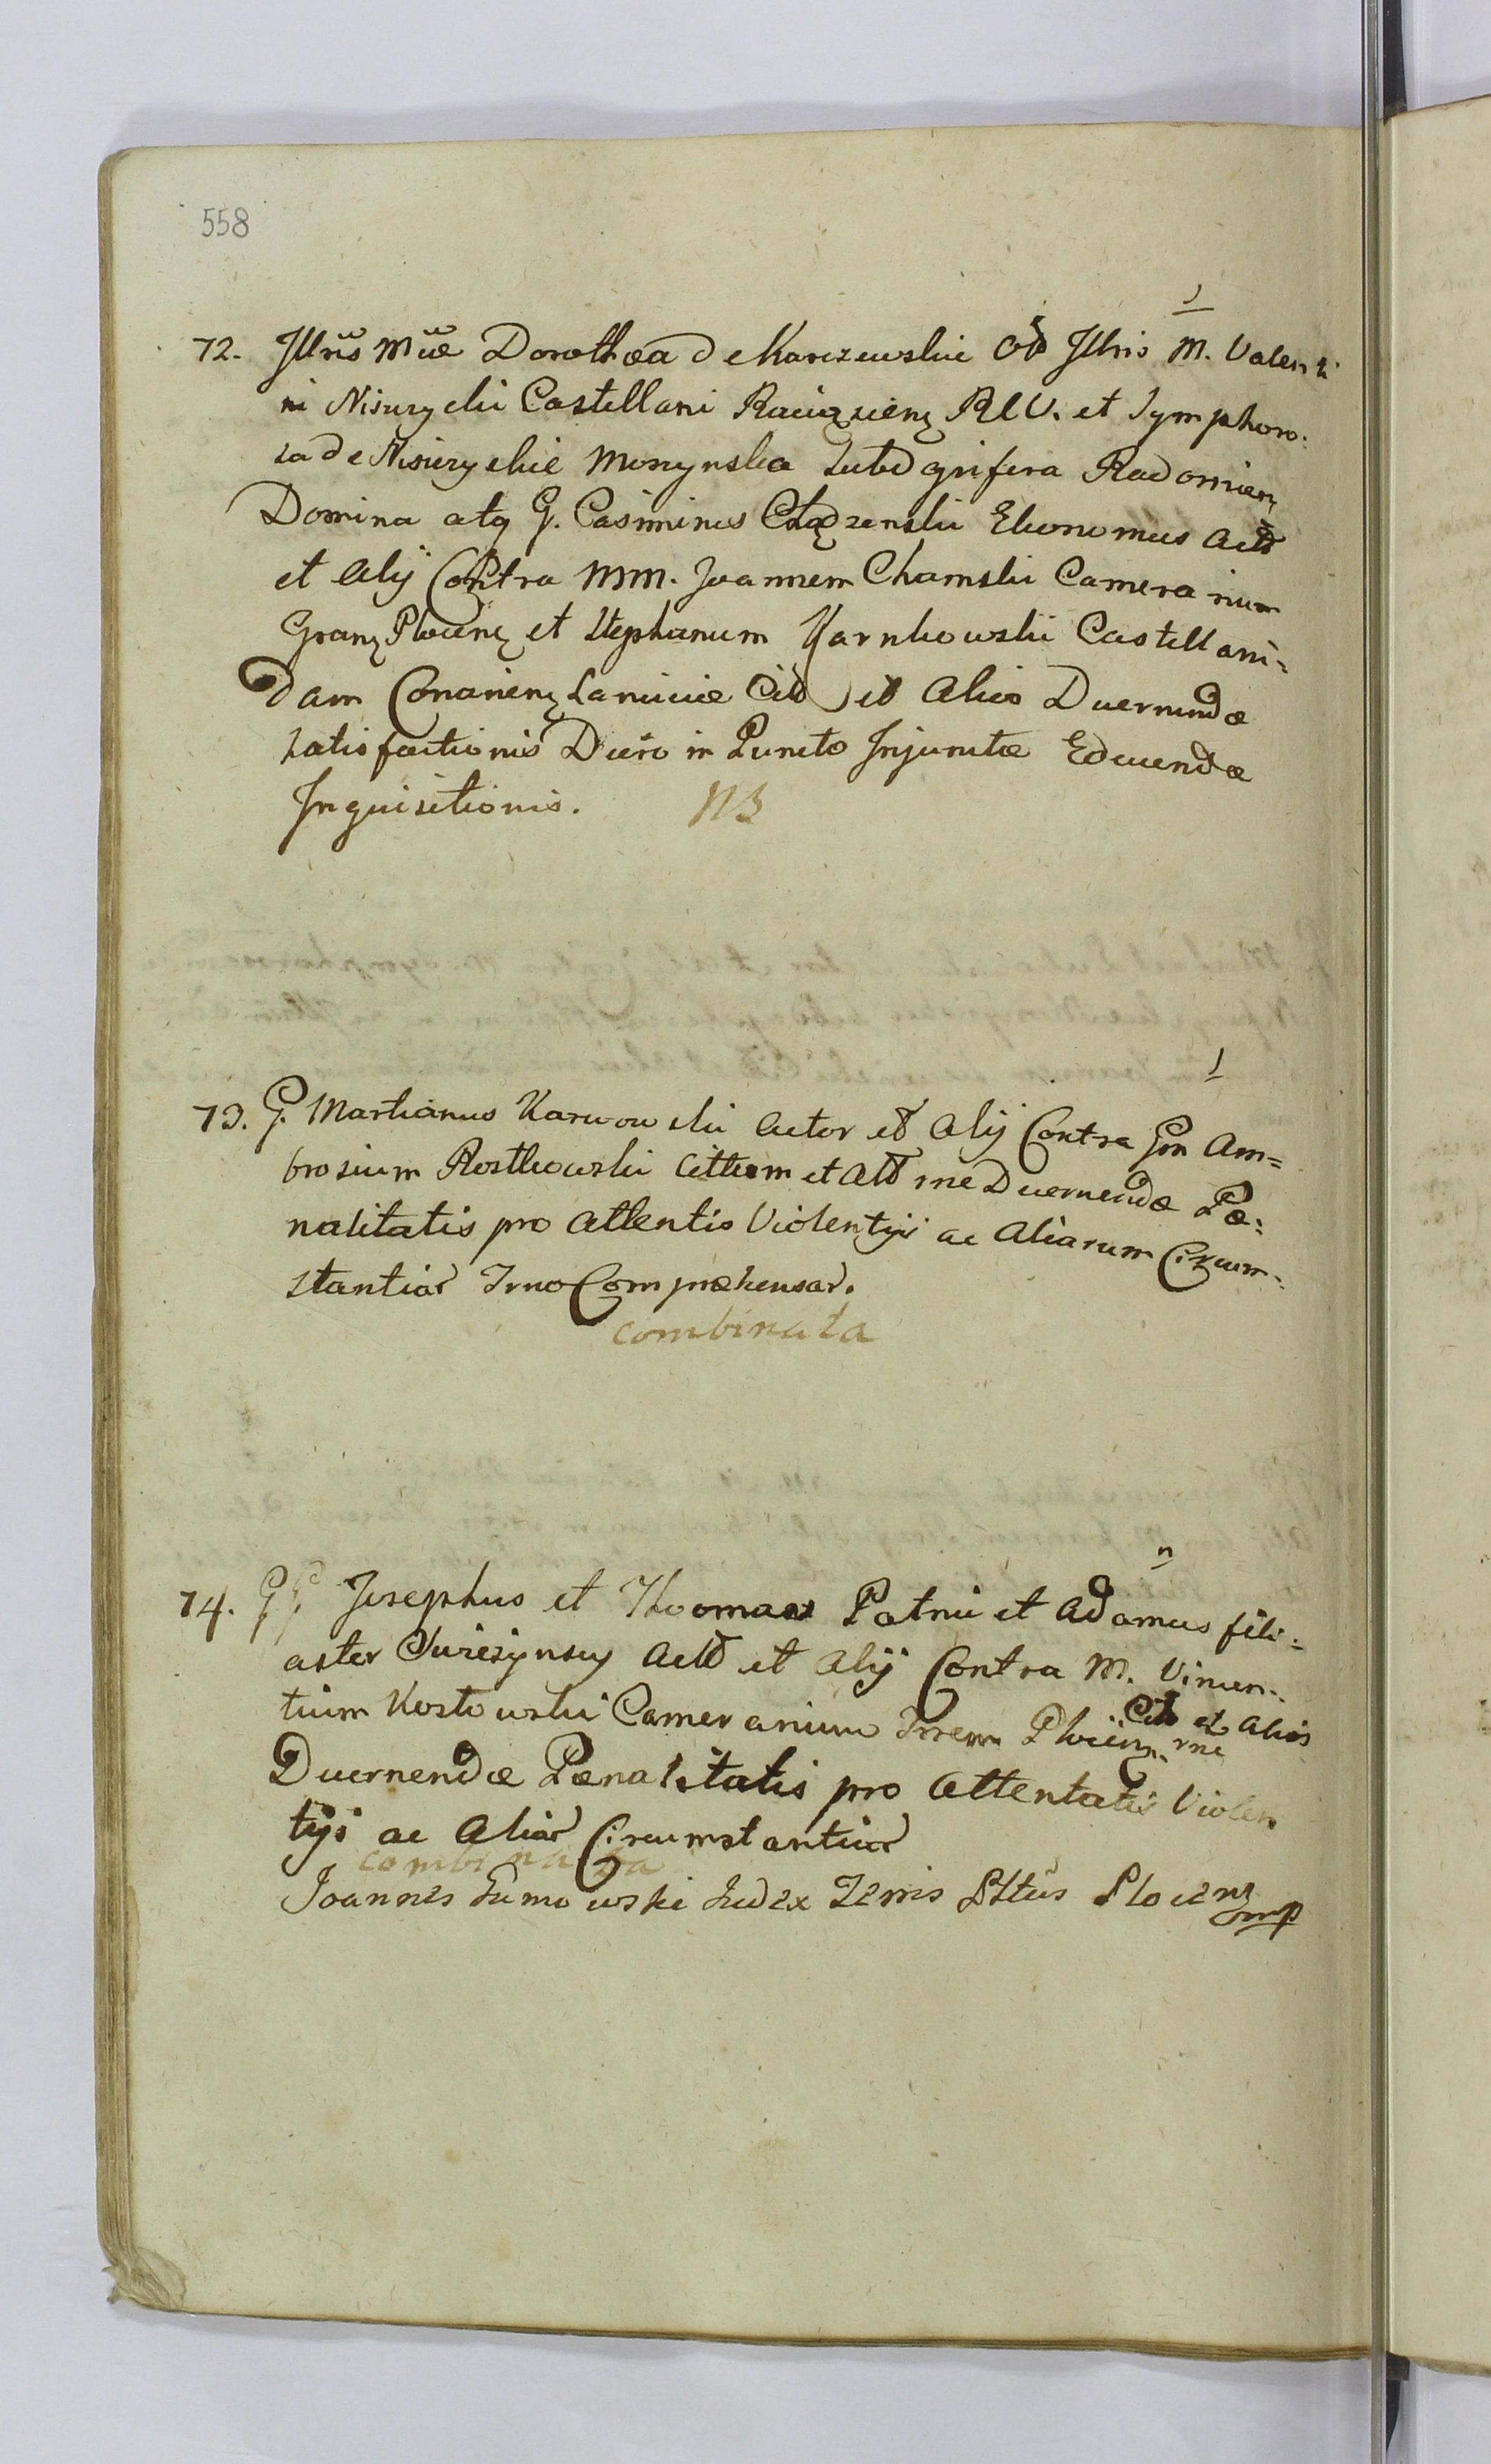 558
72. Jllris Mcae Dorothea de Karczewskie Od Jllris M. Valenti
ni Nisczyckii Castellani Raciązienȝ RCV. et Symphoro-
sa de Nisczyckie Moszynska Subdgrifera Radomienȝ
Domina atq G. Casimirus Chądzenski Ekonomus Actt
et Alij Contra MM. Joannem Chamski Camerarium
Granȝ Plocenȝ et Stephanum Karnkowski Castellani-
dam Conarienȝ Laniciae Citt et Alios Duernendæ
Satisfactionis Dcero in Puncto Injunctæ Educendæ
Inquisitionis. NB
73. G. Martianus Karwowski Actor et Alij Contra Gm Am=
brosium Rostkowski Cittum et Att me Duernendæ Pæ-
nalitatis pro Attentis Violentijs ac Aliarum Circum-
stantiar Irno Compræhensar.
combinata
74. GG. Josephus et Thomas Patrui et Adamus fili-
aster Ciurczynscy Actt et Alij Contra M. Vincen-
tium Kostowski Camerarium Trrem Plocenȝ Citt et Alios
rne
Duernendæ Pænalitatis pro Attentatis Violen
tijs ac Aliar Circumstantiar
combinata
Joannes Sumowski Judex Zemis Pltus Plocenȝ mp